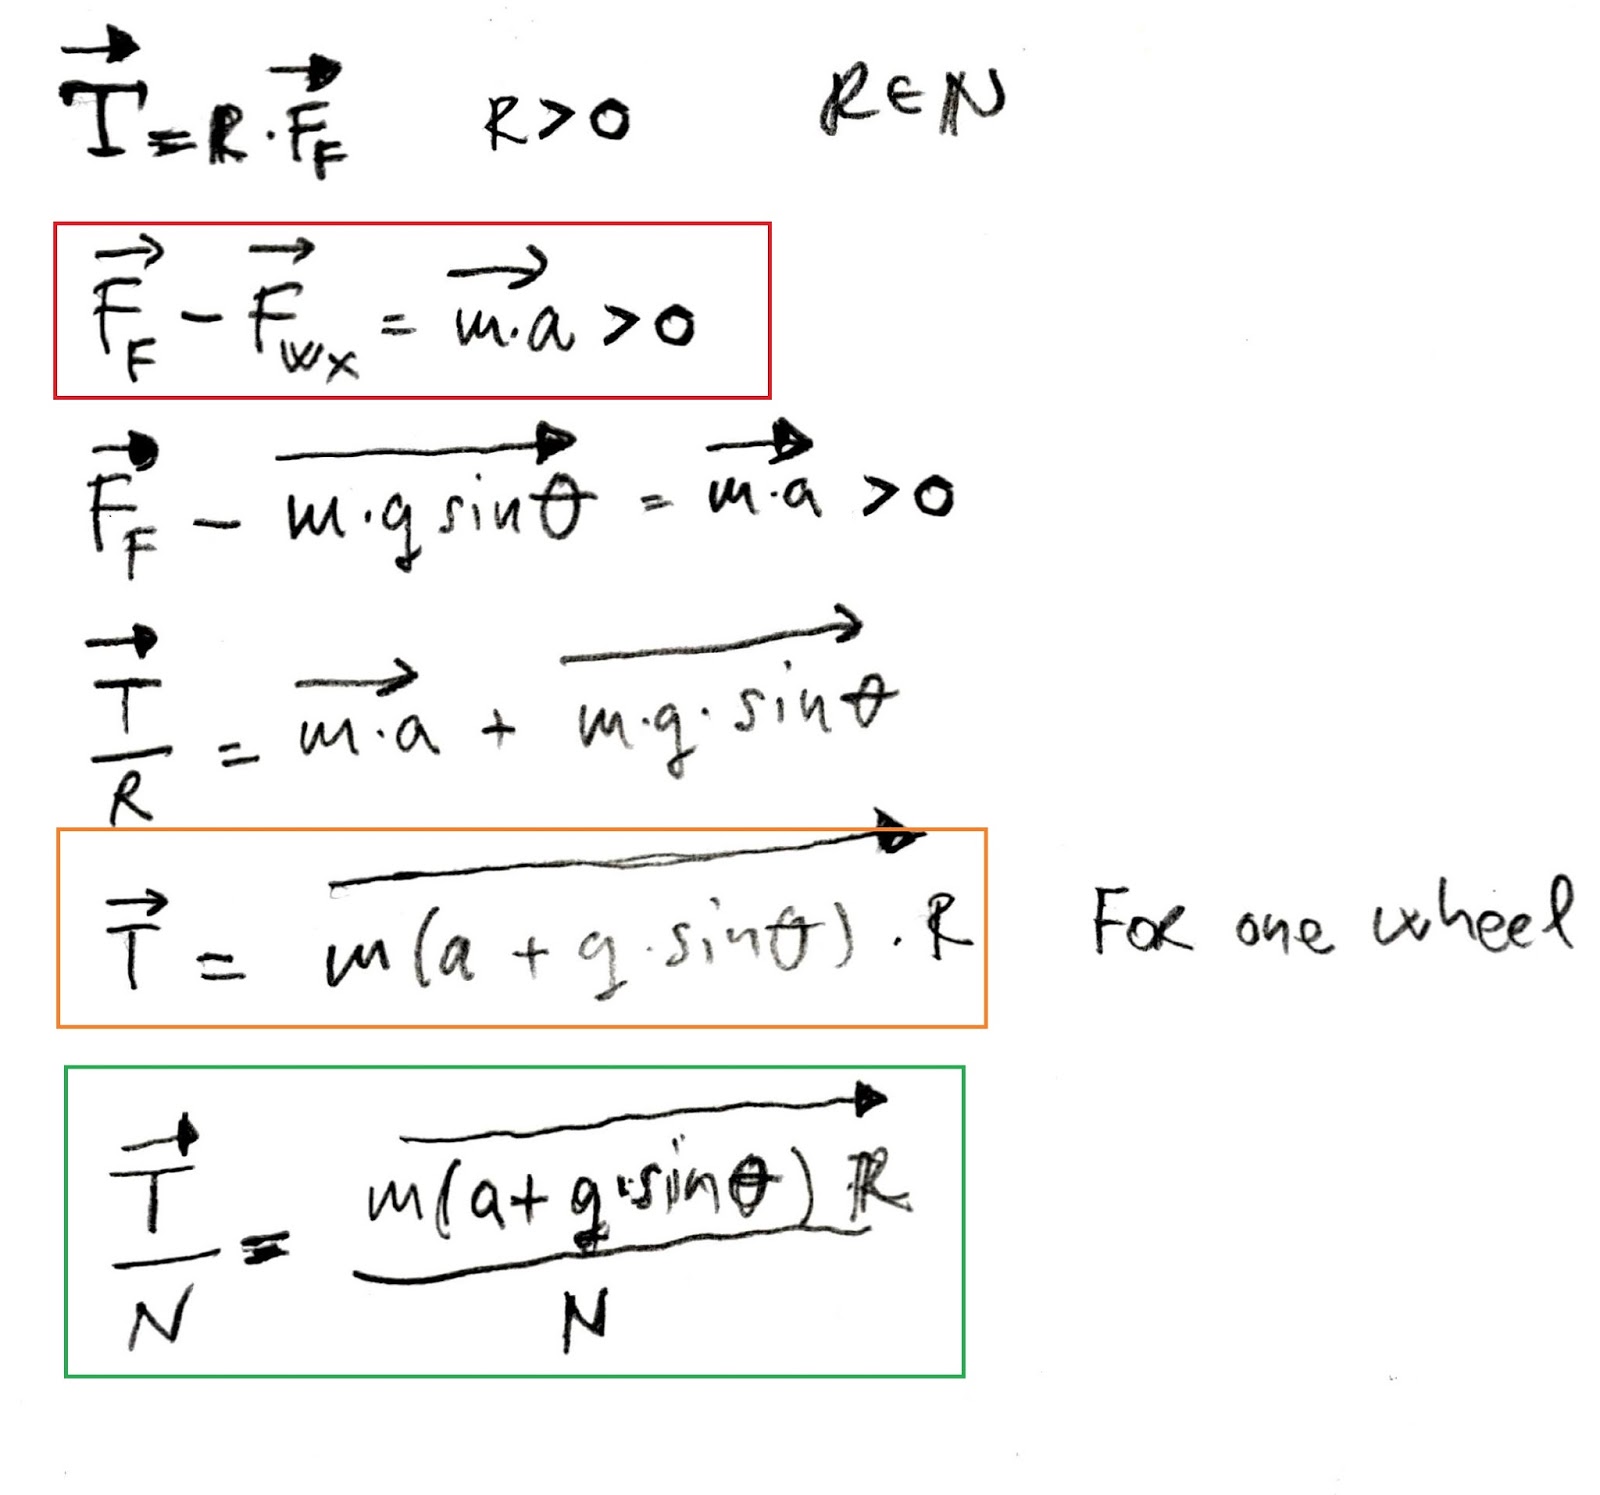 T⃗ = R · F⃗_F    R > 0    R ∈ N
F⃗_F − F⃗_wx = m·a⃗ > 0
F⃗_F − m·g sinθ⃗ = m·a⃗ > 0
T⃗/R = m·a⃗ + m·g·sinθ⃗
T⃗ = m(a + g·sinθ)⃗ · R    For one wheel
T⃗/N = m(a + g·sinθ)⃗ R / N